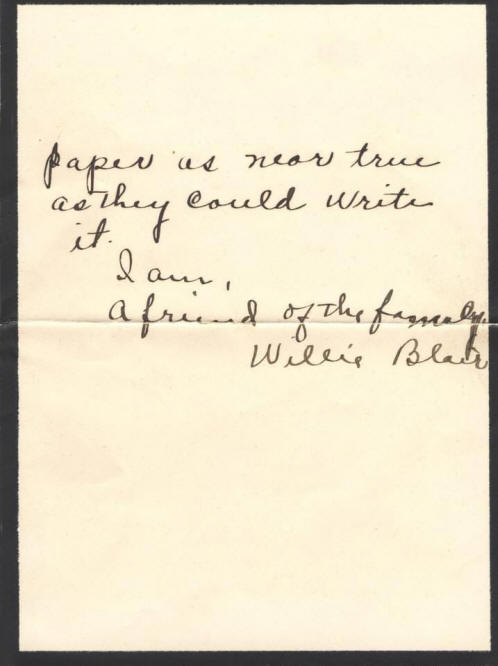 paper is near true
as they could write
it.
I am,
A friend of the family.
Willie Blair